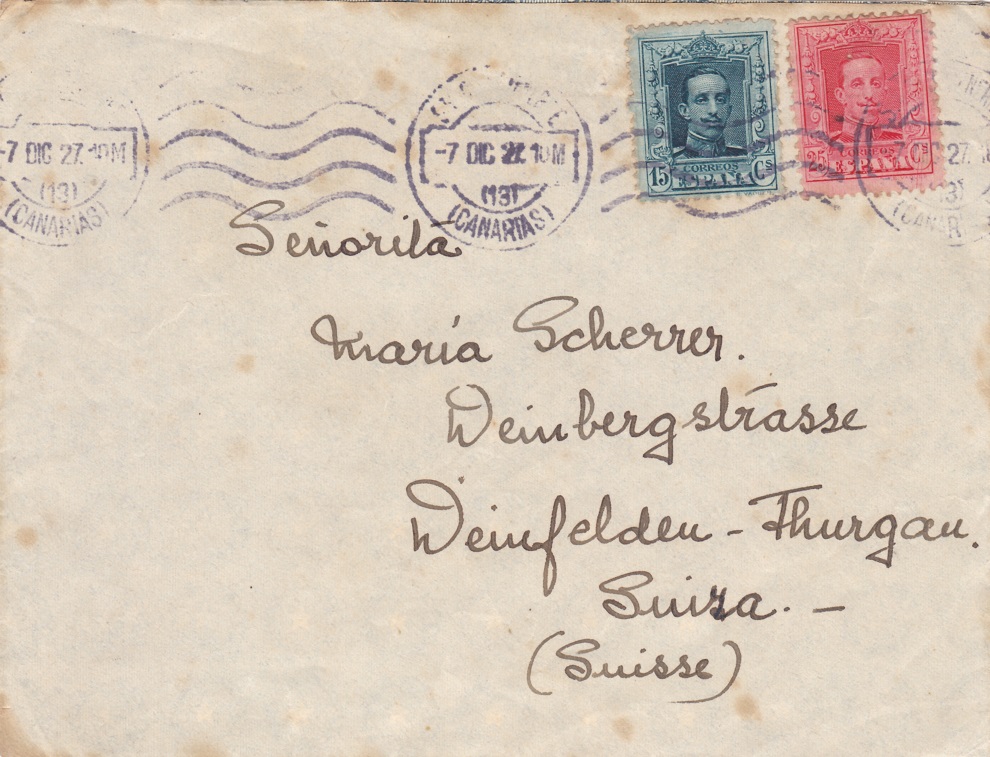 -7 DIC 27. 10 M
(13)
(CANARIAS)
-7 DIC 27. 10 M
(13)
(CANARIAS)
15 CORREOS Cs
ESPAÑA
25 Cs
ESPAÑA
27.
Señorita
María Scherrer.
Weinbergstrasse
Weinfelden - Thurgau.
Suiza. -
(Suisse)